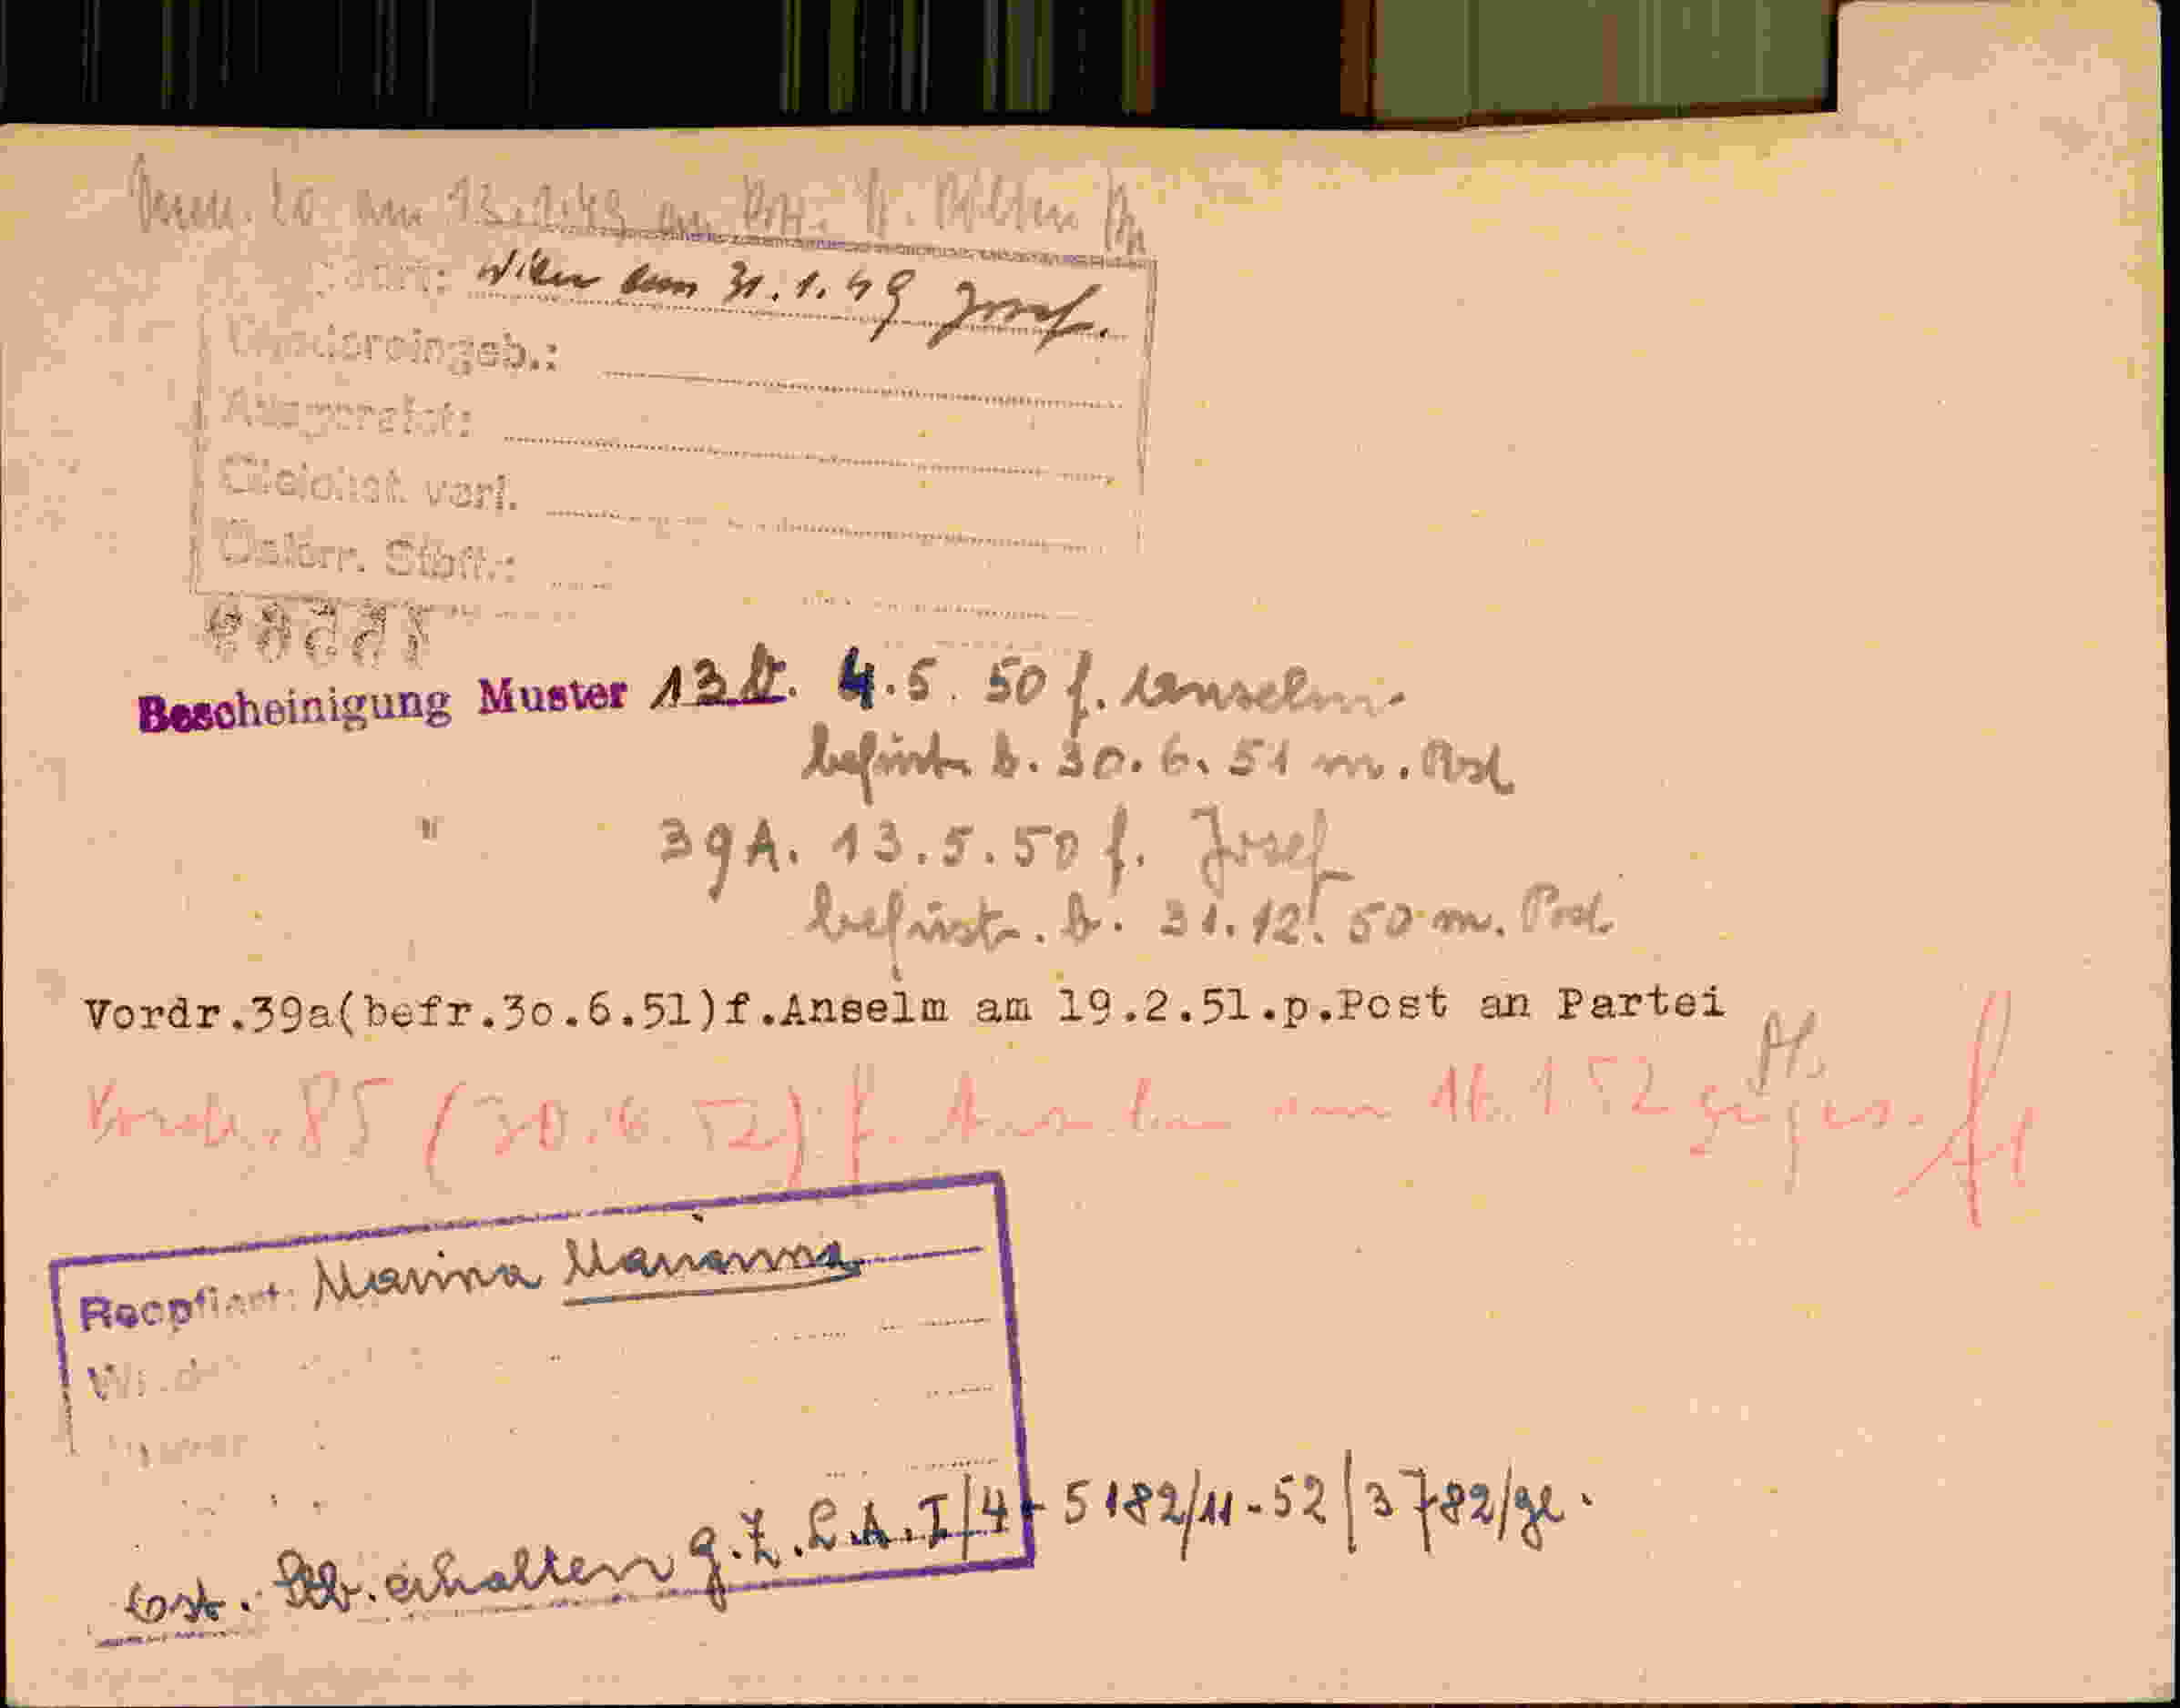 am 13.1.49 an
am 31.1.49 Josef.
Wiedereingeb.:
Ausgereist:
Gleichst. verl.
Österr. Stbft.:
Bescheinigung Muster 13b. 4.5.50 f. Anselm
befrist. b. 30.6.51 m. Post
" 39A. 13.5.50 f. Josef
befrist. b. 31.12.50 m. Post
Vordr.39a(befr.3o.6.51)f.Anselm am 19.2.51.p.Post an Partei
Vordr. 85 (30.6.52) f. Anselm am 16.1.52
Reoptiert: Marianna
Öst. Stb. erhalten g.Z. L.A.I/4-5182/11-52/3782/ge.